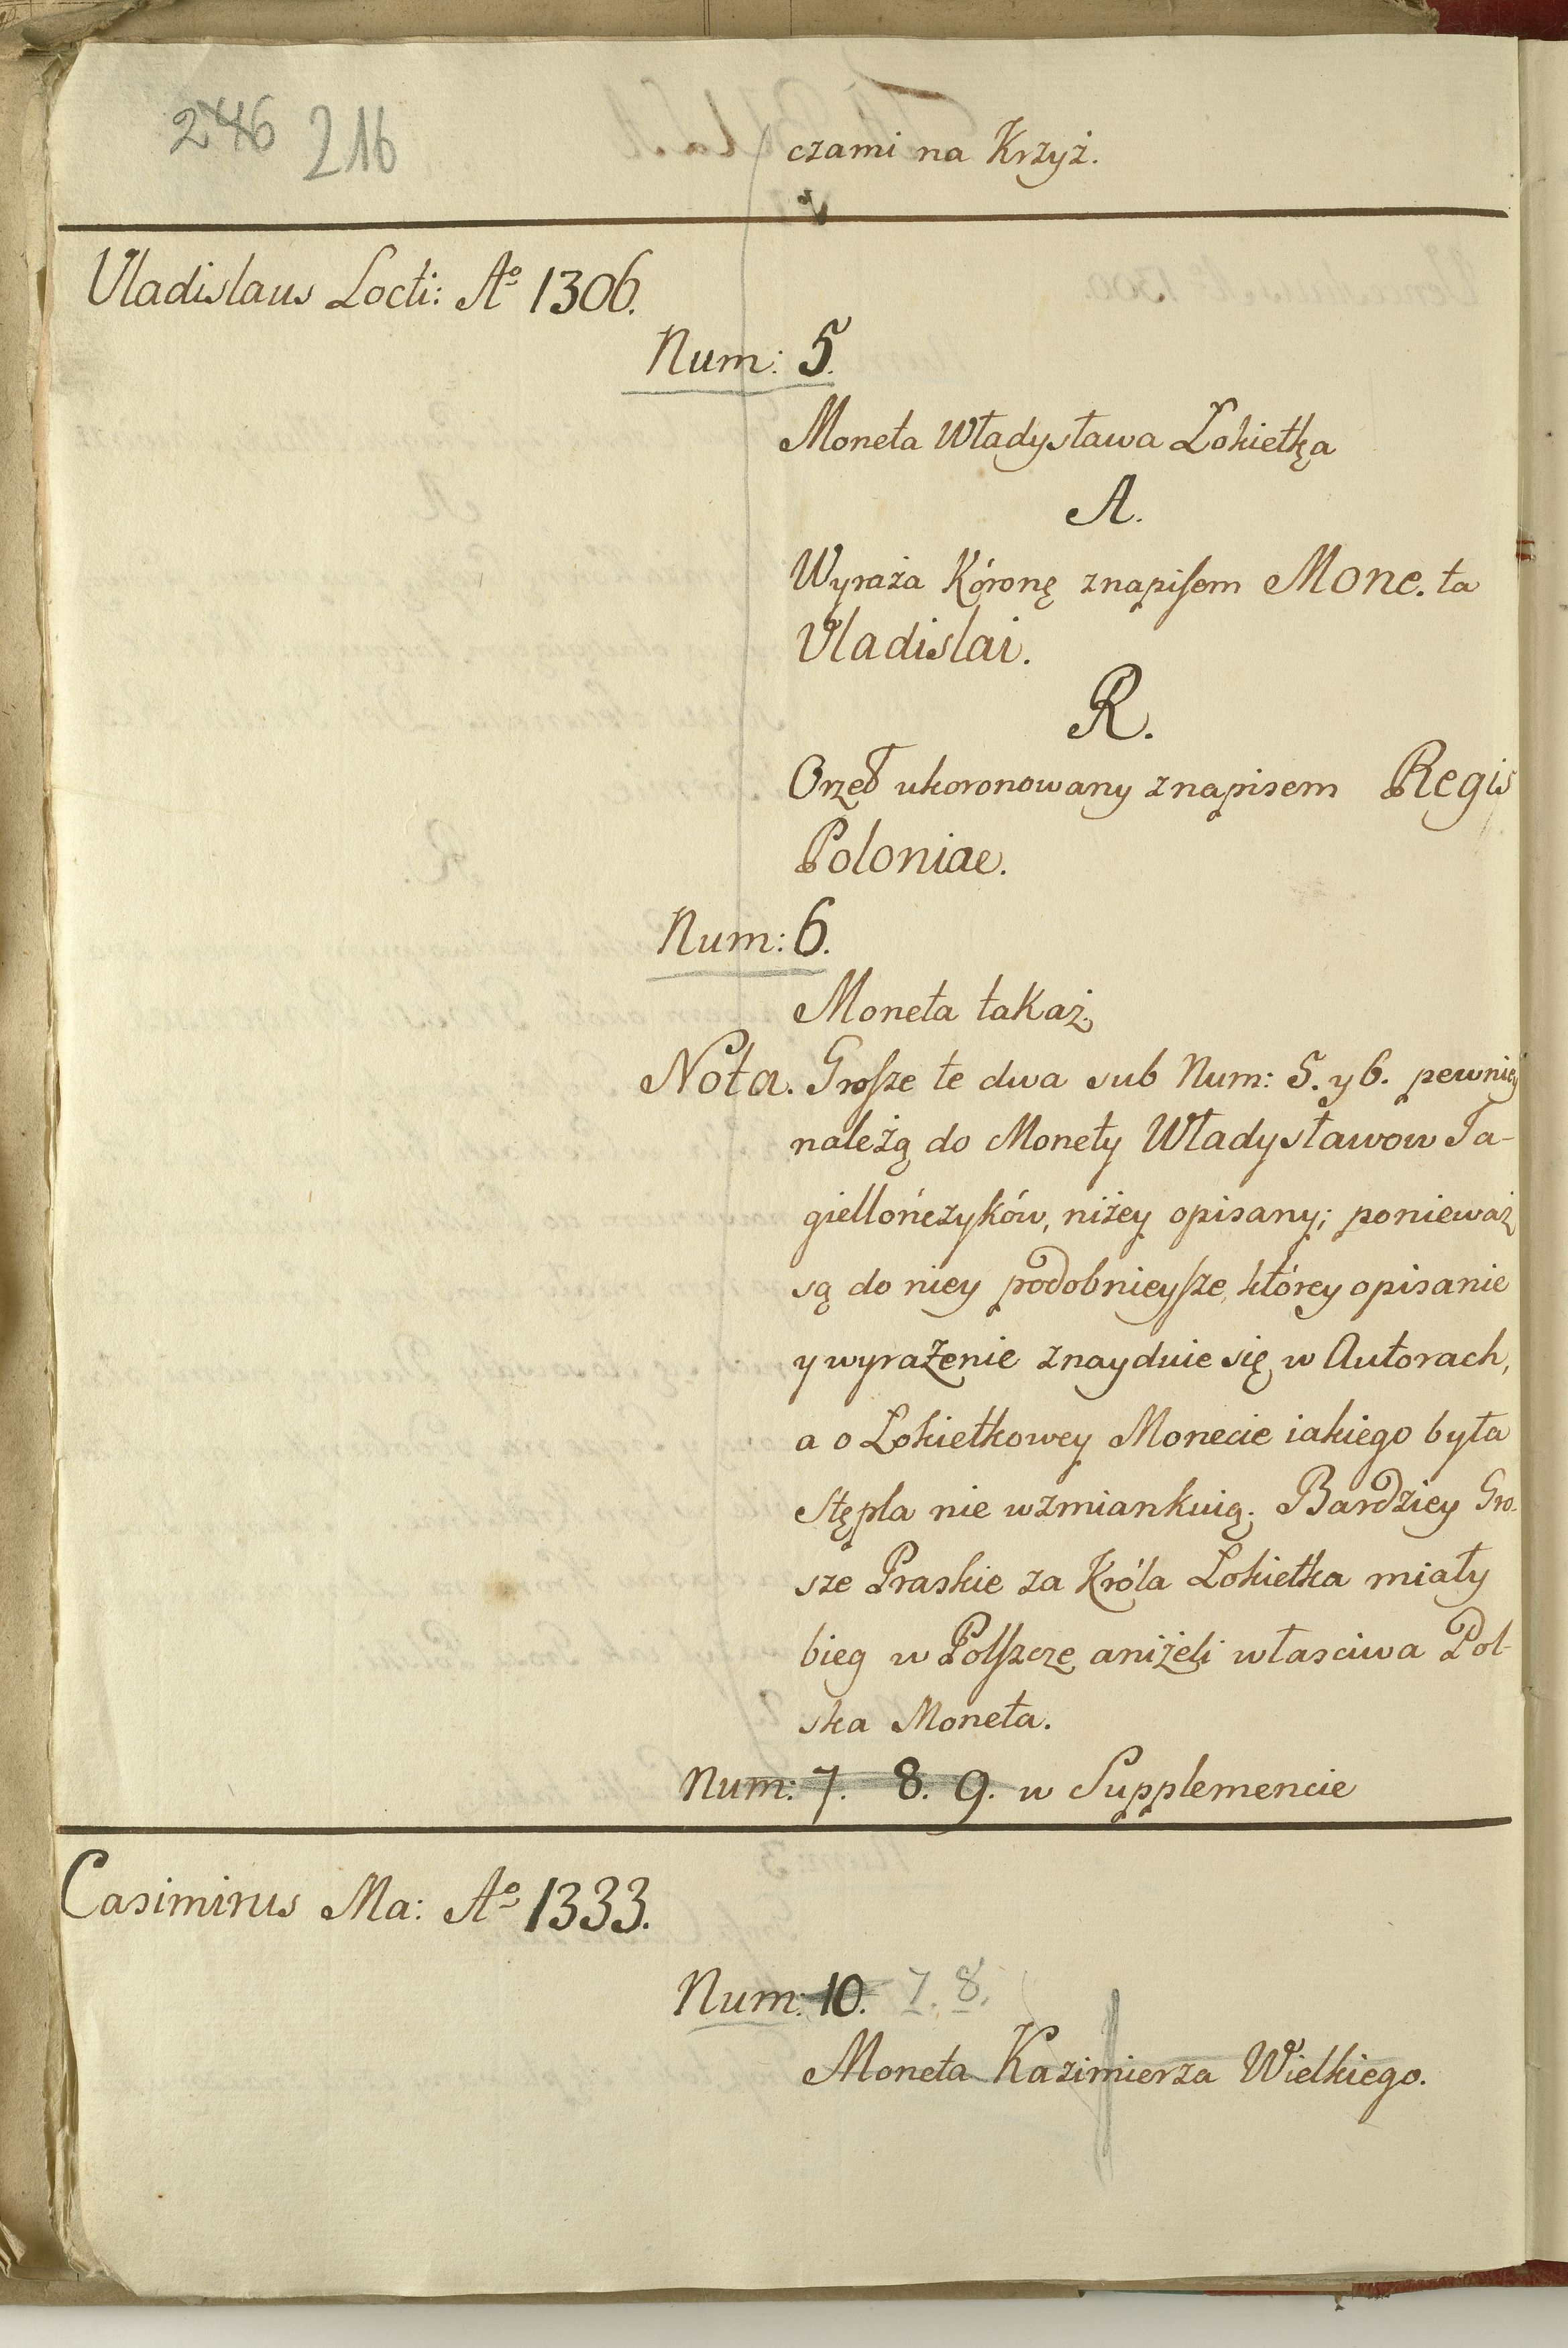 246 216
czami na Krzyż.
Vladislaus Locti: Aº 1306.
Num: 5.
Moneta Władysława Lokietka
A.
Wyraża Kóronę znapisem Mone. ta
Vladislai.
R.
Orzeł ukoronowany znapisem Regis
Poloniae.
Num: 6.
Moneta takaż
Nota. Grosze te dwa sub Num: 5. y 6. pewniey
należą do Monety Władysławow Ja-
giellończyków, niżey opisany; ponieważ
są do niey podobnieysze, którey opisanie
y wyrażenie znayduie się w Autorach,
a o Lokietkowey Monecie iakiego była
stępla nie wzmiankuią. Bardziey Gro-
sze Praskie za Króla Lokietka miały
bieg w Polszcze aniżeli własciwa Pol-
ska Moneta.
Num: 7. 8. 9. w Supplemencie
Casimirus Ma: Aº 1333.
Num: 10. 7. 8.
Moneta Kazimierza Wielkiego.